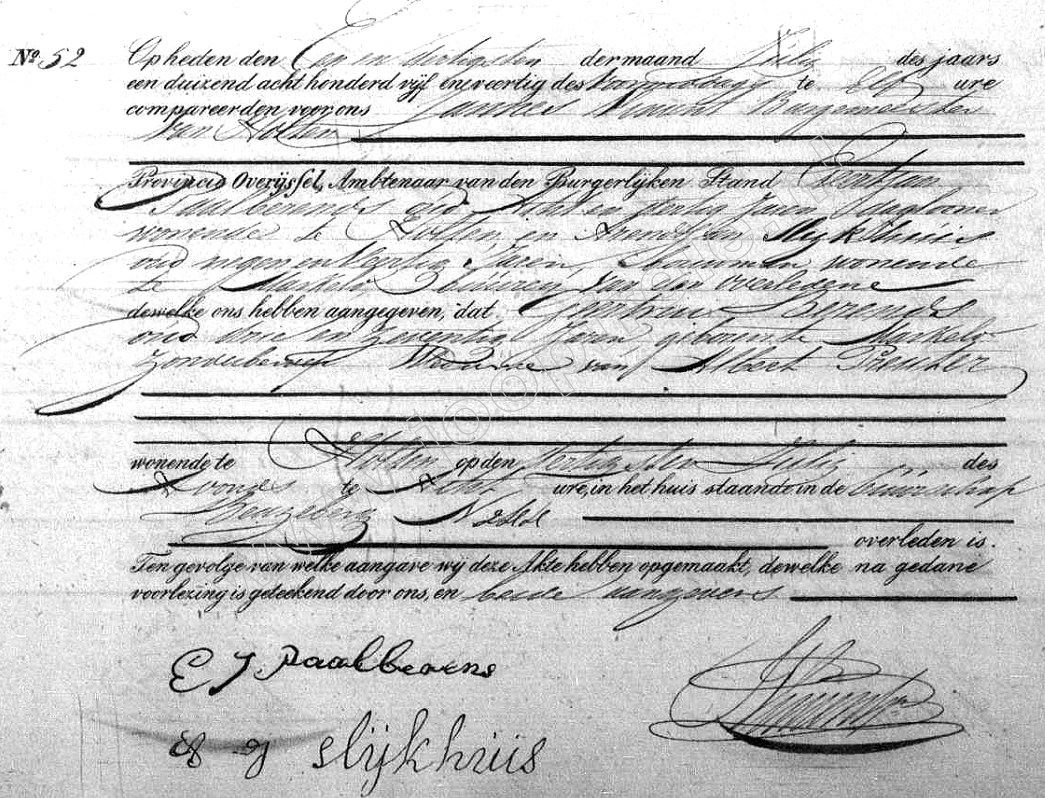 No. 52 Op heden den Een en dertigsten der maand Julij des jaars
een duizend acht honderd vijf en veertig des voormiddags te Elf ure
compareerden voor ons Burgemeester
van Holten
Provincie Overijssel, Ambtenaar van den Burgerlijken Stand Gerrit Jan
Paalberends oud Acht en dertig Jaren Daglooner
wonende te Holten, en Arend Jan Slijkhuis
oud negen en twintig Jaren, Bouwman wonende
te Markelo Buuren van den Overledene
dewelke ons hebben aangegeven, dat Geertruij Berends
oud drie en zeventig Jaren, geboren te Markelo
zonder beroep Weduwe van Albert
wonende te Holten op den dertigsten Julij des
avonds te Acht ure, in het huis staande in de Buurschap
Beuseberg N
overleden is.
Ten gevolge van welke aangave wij deze Akte hebben opgemaakt, dewelke na gedane
voorlezing is geteekend door ons, en beide aangevers
G J. Paalberens
A J Slijkhuis